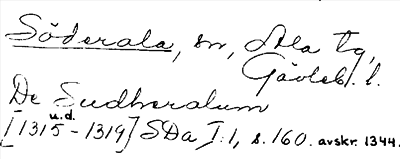 Söderala, sn, Ala tg,
Gävleb. l.
De Sudheralum
u.d.
[1315 - 1319] SDa I:1, s. 160. avskr. 1344.